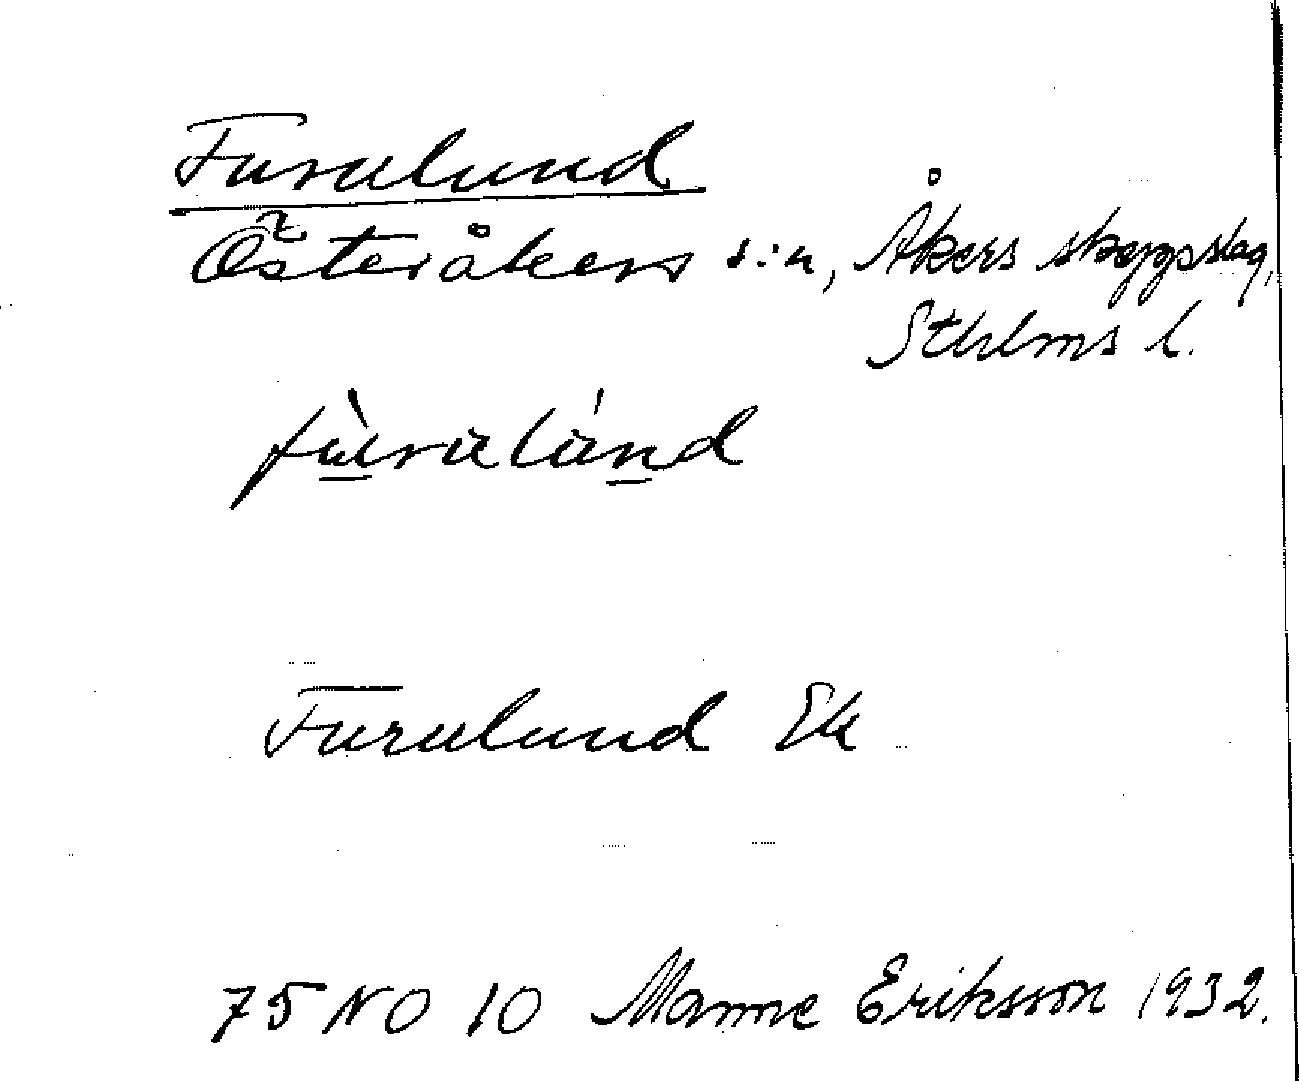 Furulund
Österåkers s:n, Åkers skeppslag,
Sthlms l.
fùrulúnd
Furulund Ek
75 NO 10 Manne Eriksson 1932.